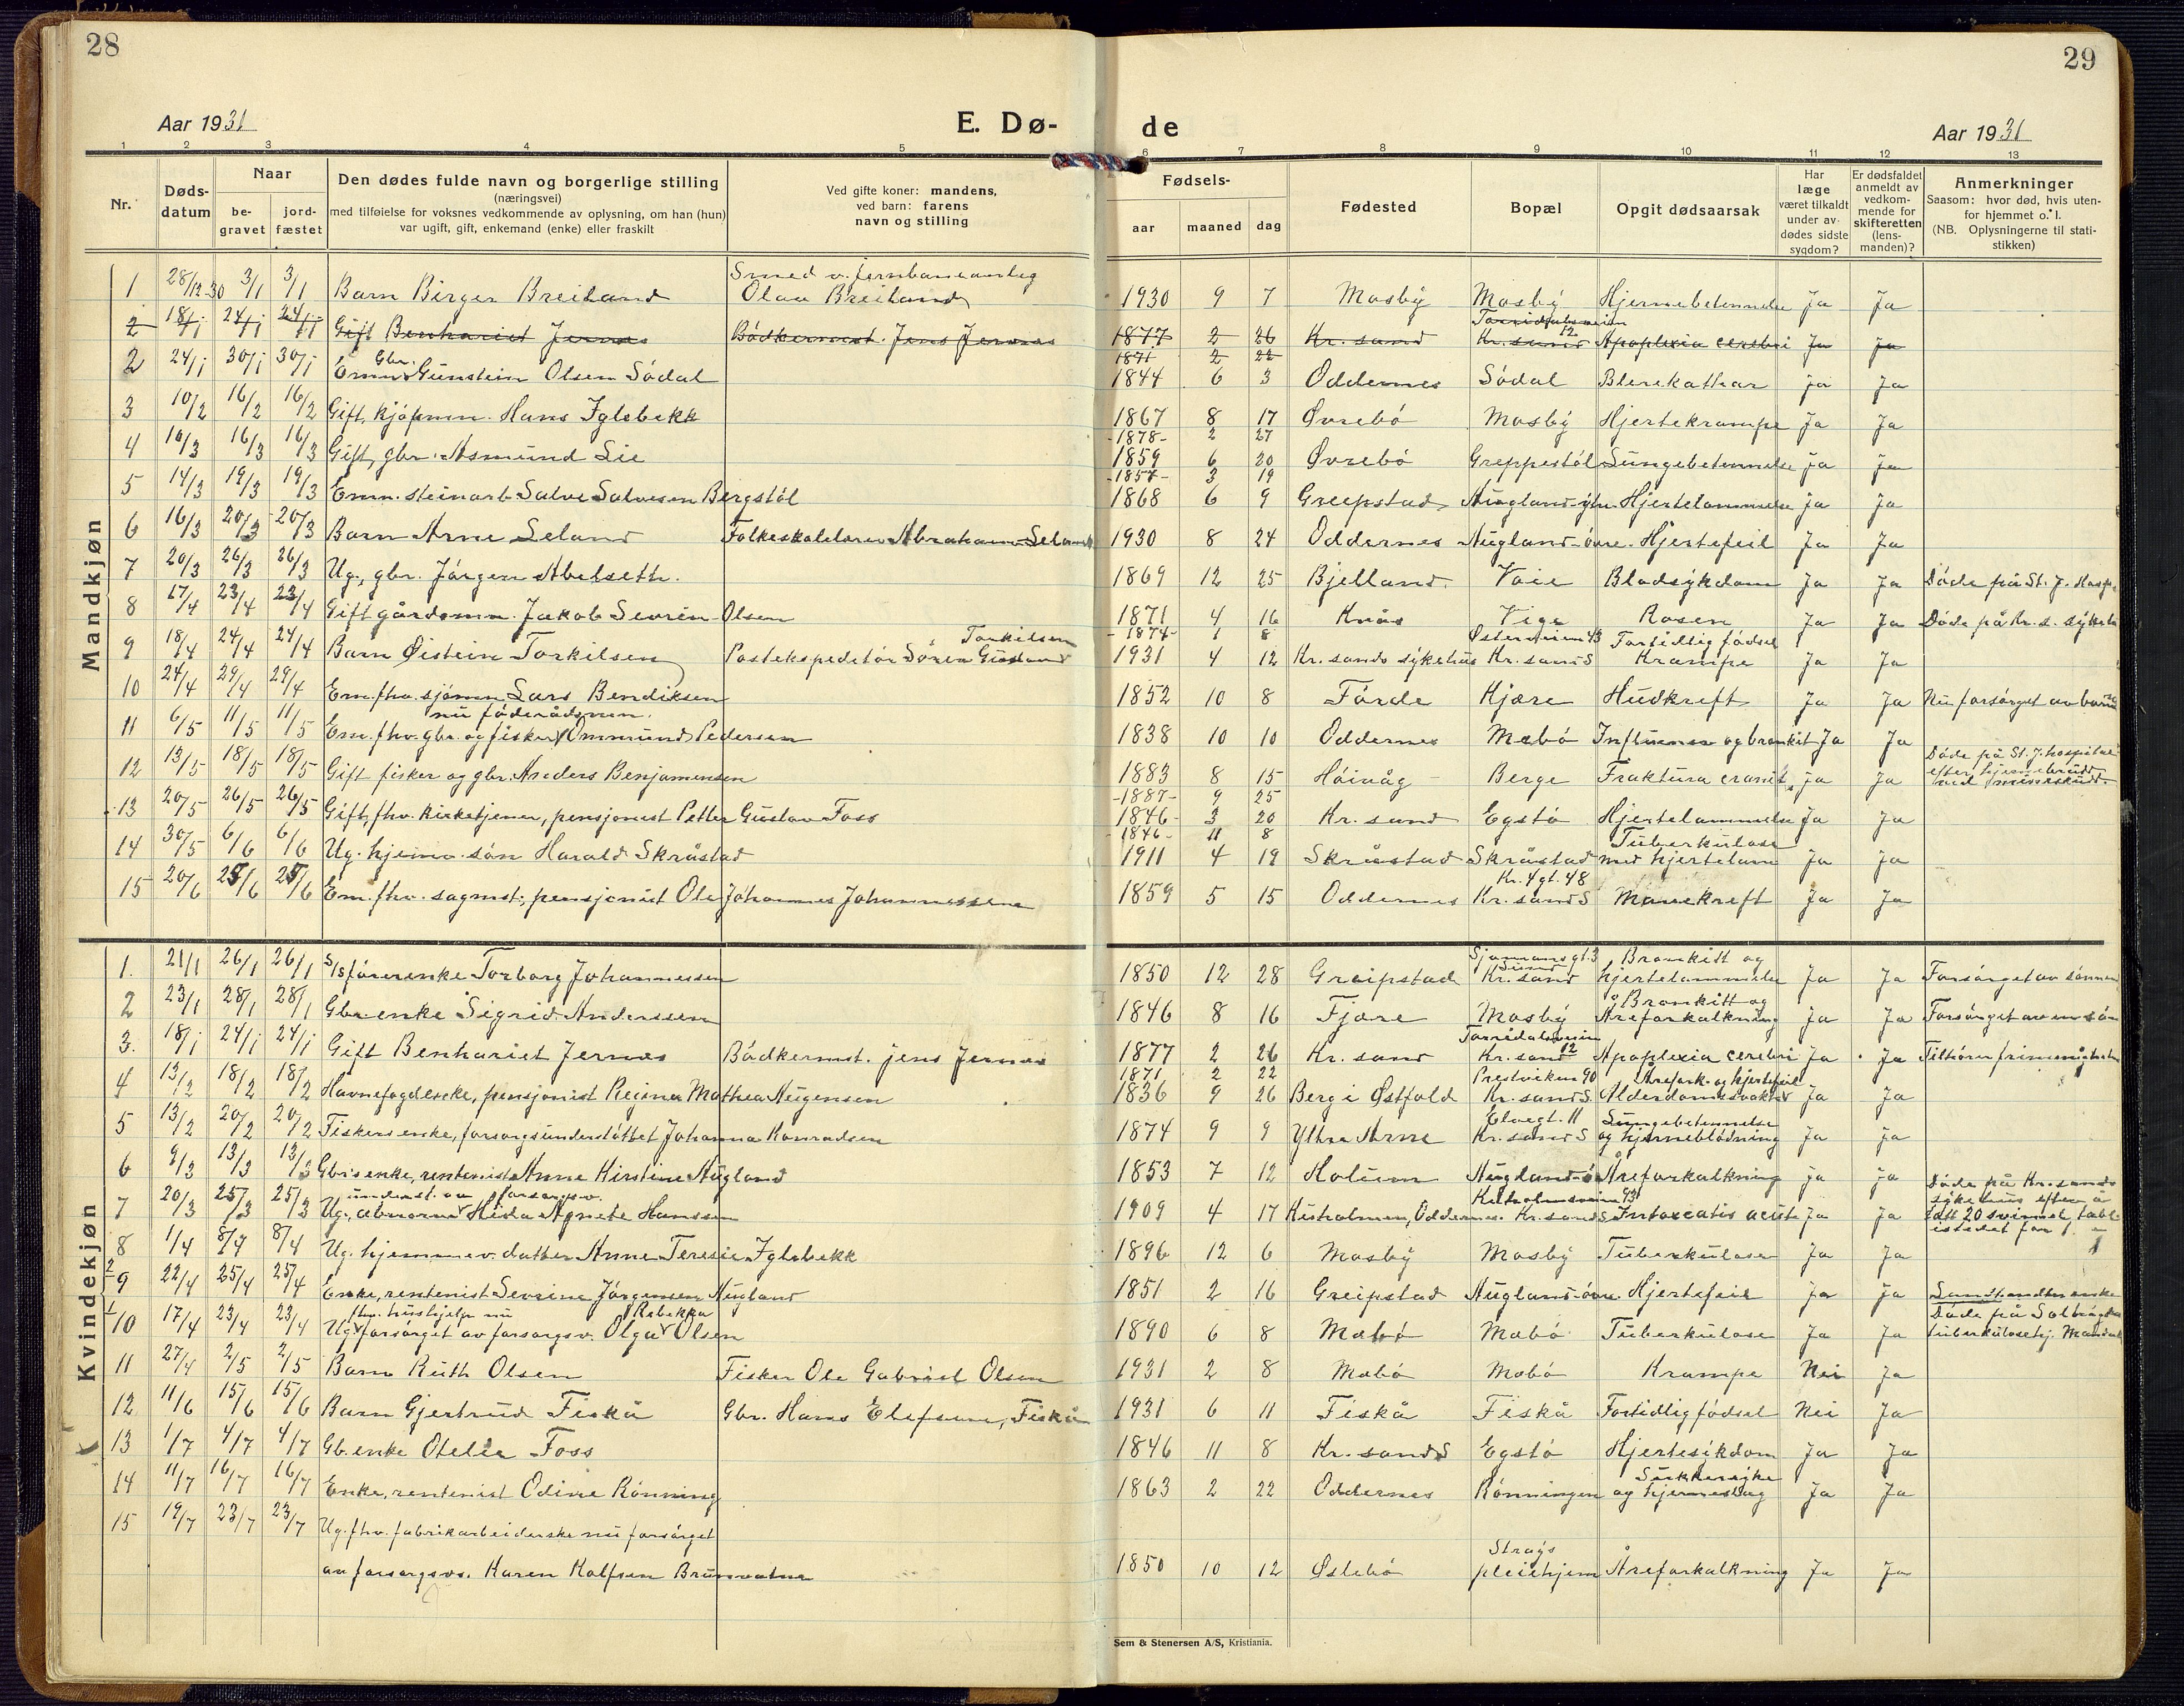 28
29
Aar 1931
E. Dø-
de
Aar 1931
1 2 3 4 5 6 7 8 9 10 11 12 13
Nr.
Døds-
datum
Naar
be-
gravet
jord-
fæstet
Den dødes fulde navn og borgerlige stilling
(næringsvei)
med tilføielse for voksnes vedkommende av oplysning, om han (hun)
var ugift, gift, enkemand (enke) eller fraskilt
Ved gifte koner: mandens,
ved barn: farens
navn og stilling
Fødsels-
aar maaned dag
Fødested
Bopæl
Opgit dødsaarsak
Har
læge
været tilkaldt
under av-
dødes sidste
sygdom?
Er dødsfaldet
anmeldt av
vedkom-
mende for
skifteretten
(lens-
manden)?
Anmerkninger
Saasom: hvor død, hvis uten-
for hjemmet o. l.
(NB. Oplysningerne til stati-
stikken)
Mandkjøn
Smed v. jernbaneanlæg
1 28/12-30 3/1 3/1 Barn Birger Breiland Olav Breiland 1930 9 7 Mosby Mosby Hjernebetennelse Ja Ja
Torridalsveien
12
2 18/1 24/1 24/1 Gift Benhariet Jernæs Bödkermst. Jens Jernæs 1877 2 26 Kr.sand Kr.sand Apoplexia cerebri Ja Ja
1871 2 22
Gbr.
2 24/1 30/1 30/1 Emn. Gunstein Olsen Södal 1844 6 3 Oddernes Södal Blerekathar Ja Ja
3 10/2 16/2 16/2 Gift, kjöpmn. Hans Iglebekk 1867 8 17 Øvrebö Mosby Hjertekrampe Ja Ja
-1878- 2 27
4 10/3 16/3 16/3 Gift, gbr. Asmund Lie 1859 6 20 Øvrebö Greppestöl Lungebetennelse Ja Ja
-1857- 3 19
5 14/3 19/3 19/3 Emn. steinarb. Salve Salvesen Bergstöl 1868 6 9 Greipstad Augland- Hjertelammelse Ja Ja
6 16/3 20/3 20/3 Barn Arne Seland Folkeskolelærer Abraham Seland 1930 8 24 Oddernes Augland-övre. Hjertefeil Ja Ja
7 20/3 26/3 26/3 Ug., gbr. Jörgen Abelseth. 1869 12 25 Bjelland. Voie Blodsykdom Ja Ja Döde på St. J. Hosp.
8 17/4 23/4 23/4 Gift gårdsmn. Jakob Severin Olsen 1871 4 16 Knås Vige Rosen Ja Ja Döde på Kr. s. sykeh.
-1874- 1 8
Torkilsen Østerveien 43 Fortidlig födsel
9 18/4 24/4 24/4 Barn Øistein Torkilsen Postekspeditör Sören Gustav 1931 4 12 Kr.sands sykehus Kr.sand S Krampe Ja Ja
10 24/4 29/4 29/4 Em. fhv. sjömn. Lars Bendiksen 1852 10 8 Förde Kjære Hudkreft Ja Ja Nu forsörget av barna
nu föderådsmn.
11 6/5 11/5 11/5 Em. fhv. gbr. og fisker Ommund Pedersen 1838 10 10 Oddernes Mebö Influensa og bronkit Ja Ja
12 13/5 18/5 18/5 Gift fisker og gbr. Anders Benjaminsen 1883 8 15 Höivåg Berge Fraktura cranii Ja Ja Döde på St. J. hospital
efter hjernebrudd
ved mineskudd.
-1887- 9 25
13 20/5 26/5 26/5 Gift, fhv. kirketjener, pensjonist Petter Gustav Foss 1846 3 20 Kr.sand Egstö Hjertelammelse Ja Ja
-1846- 11 8
Tuberkulose
14 30/5 6/6 6/6 Ug. hjemv. sön Harald Skråstad 1911 4 19 Skråstad Skråstad med hjertelam. Ja Ja
Kr. 4 gt. 48
15 20/6 25/6 25/6 Em. fhv. sagmst., pensjonist Ole Johannes Johannessen 1859 5 15 Oddernes Kr.sand S Mavekreft Ja Ja
Kvindekjøn
Sjømansgt. 3 Bronkitt og
1. 21/1 26/1 26/1 S/s förerenke Torborg Johannessen 1850 12 28 Greipstad Kr.sand hjertelammelse Ja Ja Forsörget av sönnen
Bronkitt og
2 23/1 28/1 28/1 Gbr.enke Sigrid Anderssen 1846 8 16 Fjære Mosby Åreforkalkning Ja Ja Forsörget av en sön
Torridalsveien
12
3. 18/1 24/1 24/1 Gift Benhariet Jernæs Bödkermst. Jens Jernæs 1877 2 26 Kr.sand Kr.sand Apoplexia cerebri Ja Ja Tilhörer frimenigheten
1871 2 22
Prestviken 90 Årefork. og hjertefeil
4 13/2 18/2 18/2 Havnefogdenke, pensjonist Regine Mathea Augensen 1836 9 26 Berg i Østfold Kr.sand S. Alderdomssvakhet Ja Ja
Elvegt. 11 Lungebetennelse
5 13/2 20/2 20/2 Fiskers enke, forsorgsunderstöttet Johanna Konradsen 1874 9 9 Ytre Arne Kr.sand S og hjerneblödning Ja Ja
6 9/3 13/3 13/3 Gbr's enke, rentenist Anne Kirstine Augland 1853 7 12 Holum Augland-ö. Åreforkalkning Ja Ja
underst. av forsorgsv. Kuholmsveien 93
7 20/3 25/3 25/3 Ug., abnorme Alida Agnete Hanssen 1909 4 17 Kuholmen, Oddernes. Kr.sand S Intoxcatio acuta Ja Ja Döde på Kr.sands
sykehus efter å
tatt 20 tabl.
istedet for 1.
8 1/4 8/4 8/4 Ug. hjemmev. datter Anne Teresie Iglebekk 1896 12 6 Mosby Mosby Tuberkulose Ja Ja
2
9 22/4 25/4 25/4 Enke, rentenist Severine Jörgensen Augland 1851 2 16 Greipstad Augland-övre. Hjertefeil Ja Ja enke
1 fhv. hushjelp nu Rebekka
10 17/4 23/4 23/4 Ug. forsörget av forsorgsv. Olga Olsen 1890 6 8 Mebö Mebö Tuberkulose Ja Ja Döde på Solbögda
tuberkulosehj. Mandal
11 27/4 2/5 2/5 Barn Ruth Olsen Fisker Ole Gabriel Olsen 1931 2 8 Mebö Mebö Krampe Nei Ja
12 11/6 15/6 15/6 Barn Gjertrud Fiskå Gbr. Hans Elefsen, Fiskå 1931 6 11 Fiskå Fiskå Fortidlig födsel Nei Ja
13 1/7 4/7 4/7 Gb.enke Otelie Foss 1846 11 8 Kr.sand S Egstö Hjertesykdom Ja Ja
Sukkersyke
14 11/7 16/7 16/7 Enke, rentenist Odine Rönning 1863 2 22 Oddernes Rönningen og hjerneslag Ja Ja
15 19/7 23/7 23/7 Ug. fhv. fabrikarbeiderske nu forsörget
Strays
av forsorgsvs. Karen Kolfsen Brunvatne 1850 10 12 Østebö pleiehjem Åreforkalkning Ja Ja
Sem & Stenersen A/S, Kristiania.